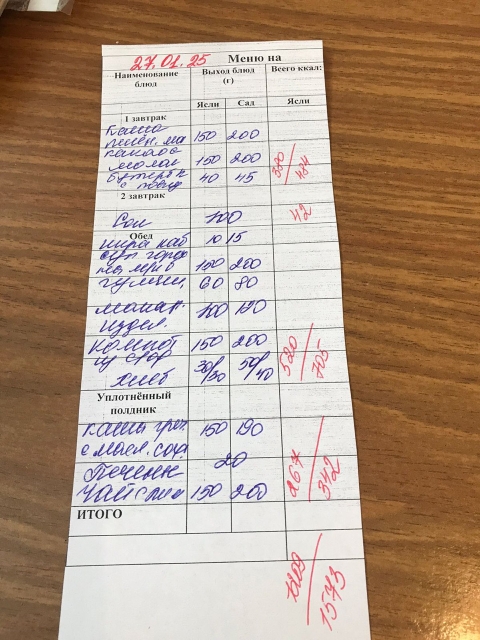 27.01.25 Меню на
Наименование блюд Выход блюд (г) Всего ккал:
Ясли Сад Ясли
1 завтрак
Каша 150 200
пшен. мо
какао 150 200
молок
Бутерб 40 45
с повид
350/484
2 завтрак
Сок 100 42
Обед
икра каб 10 15
суп горох 150 200
на мяс б
гуляш 60 80
макар. 100 120
издел.
Компот 150 200
из сухоф
хлеб 30/30 50/40
520/705
Уплотнённый
полдник
каша греч 150 190
с масл. сах.
Печенье 20
Чай с мол 150 200
267/342
ИТОГО
1209/1573